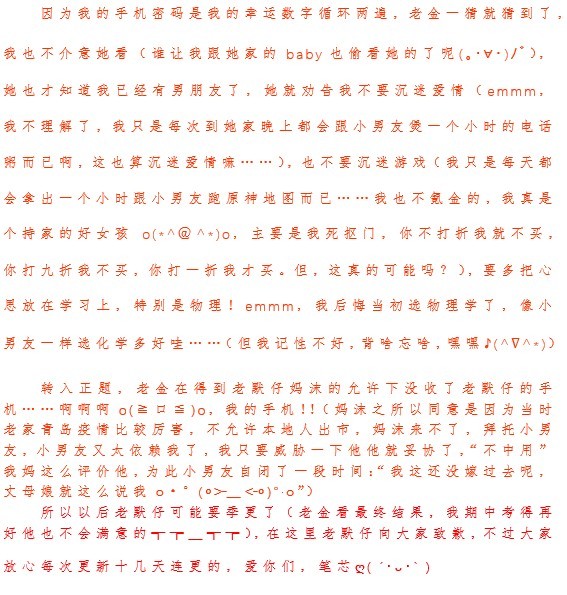 因为我的手机密码是我的幸运数字循环两遍，老金一猜就猜到了，
我也不介意她看（谁让我跟她家的 baby 也偷看她的了呢(｡･∀･)ﾉﾞ)，
她也才知道我已经有男朋友了，她就劝告我不要沉迷爱情（emmm，
我不理解了，我只是每次到她家晚上都会跟小男友煲一个小时的电话
粥而已啊，这也算沉迷爱情嘛……），也不要沉迷游戏（我只是每天都
会拿出一个小时跟小男友跑原神地图而已……我也不氪金的，我真是
个持家的好女孩 o(*^＠^*)o，主要是我死抠门，你不打折我就不买，
你打九折我不买，你打一折我才买。但，这真的可能吗？），要多把心
思放在学习上，特别是物理！emmm，我后悔当初选物理学了，像小
男友一样选化学多好哇……（但我记性不好，背啥忘啥，嘿嘿♪(^∇^*)）
转入正题，老金在得到老默仔妈沫的允许下没收了老默仔的手
机……啊啊啊 o(≧口≦)o，我的手机！！（妈沫之所以同意是因为当时
老家青岛疫情比较厉害，不允许本地人出市，妈沫来不了，拜托小男
友，小男友又太依赖我了，我只要威胁一下他他就妥协了，“不中用”
我妈这么评价他，为此小男友自闭了一段时间：“我这还没嫁过去呢，
丈母娘就这么说我 o·°(৹˃̵﹏˂̵৹)°·o”）
所以以后老默仔可能要季更了（老金看最终结果，我期中考得再
好他也不会满意的┭┮﹏┭┮），在这里老默仔向大家致歉，不过大家
放心每次更新十几天连更的，爱你们，笔芯 ღ( ´･ᴗ･` )